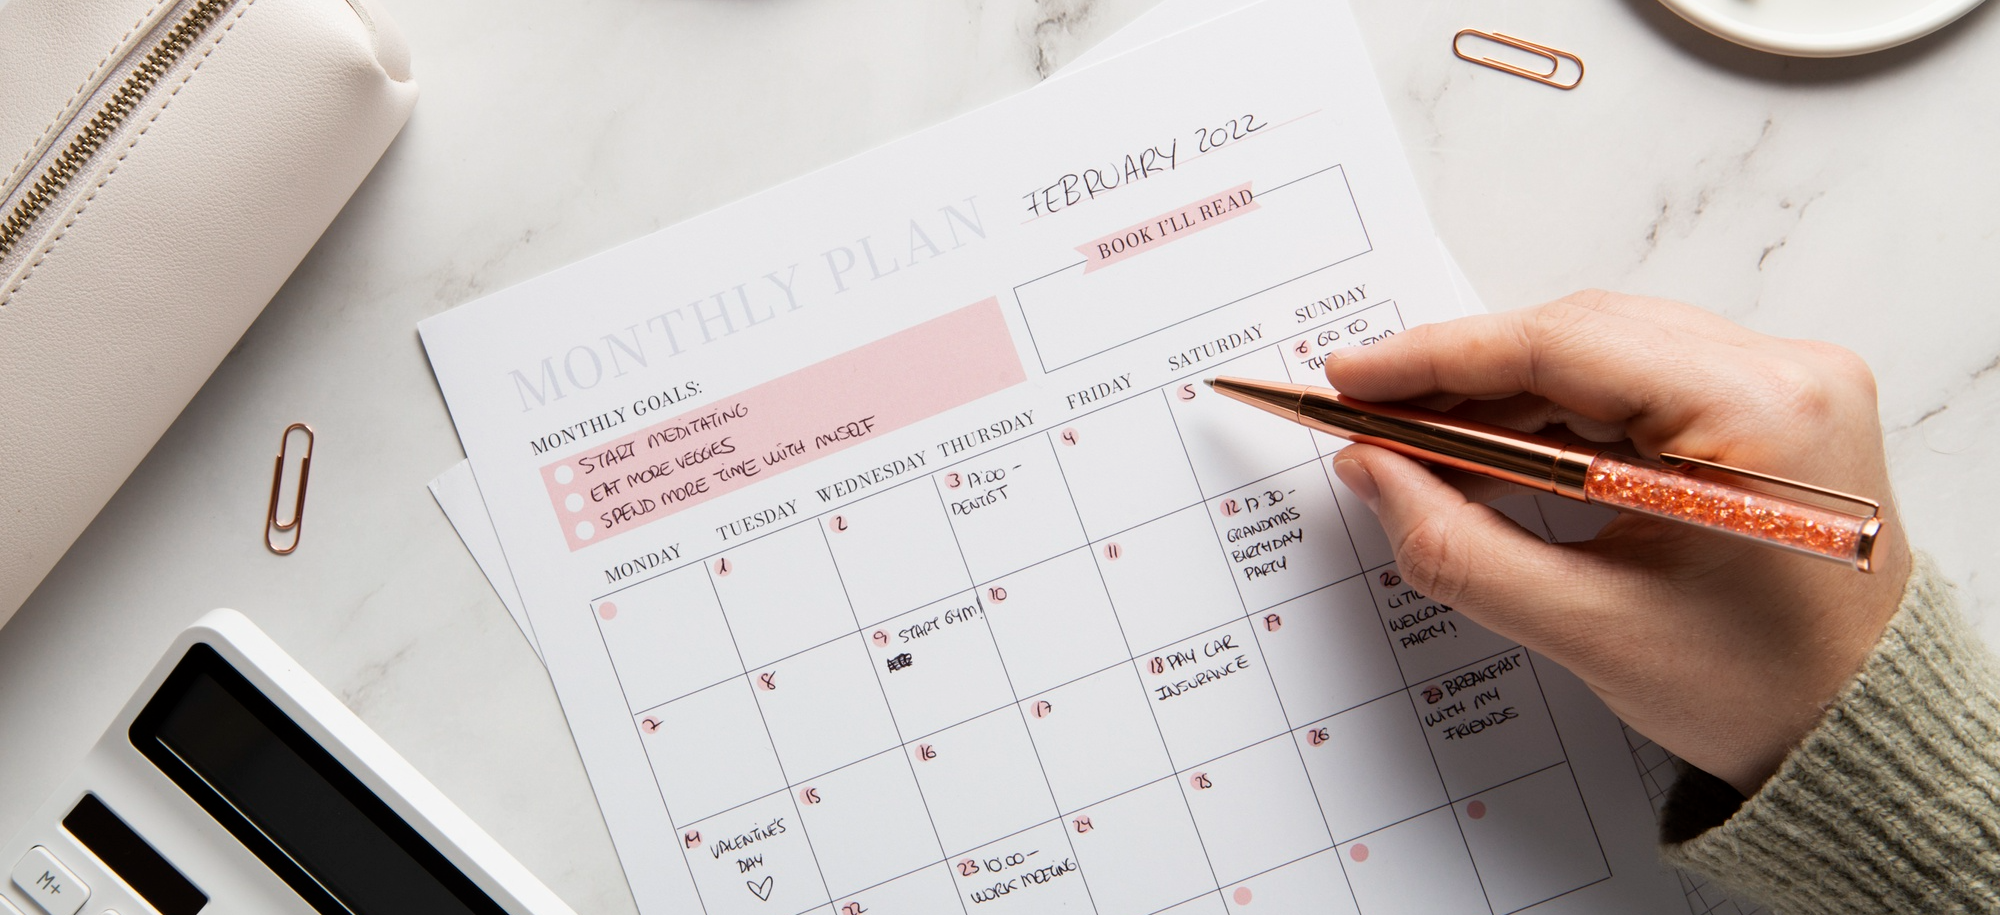 FEBRUARY 2022
MONTHLY PLAN
BOOK I'LL READ
MONTHLY GOALS:
START MEDITATING
EAT MORE VEGGIES
SPEND MORE TIME WITH MYSELF
MONDAY TUESDAY WEDNESDAY THURSDAY FRIDAY SATURDAY SUNDAY
1
2
3 17:00 -
DENTIST
4
5
6 GO TO
7
8
9 START GYM!
10
11
12 17:30 -
GRANDMA'S
BIRTHDAY
PARTY
14
VALENTINE'S
DAY
15
16
17
18 PAY CAR
INSURANCE
19
20
PARTY!
22
23 10:00 -
WORK MEETING
24
25
26
27 BREAKFAST
WITH MY
FRIENDS
M+